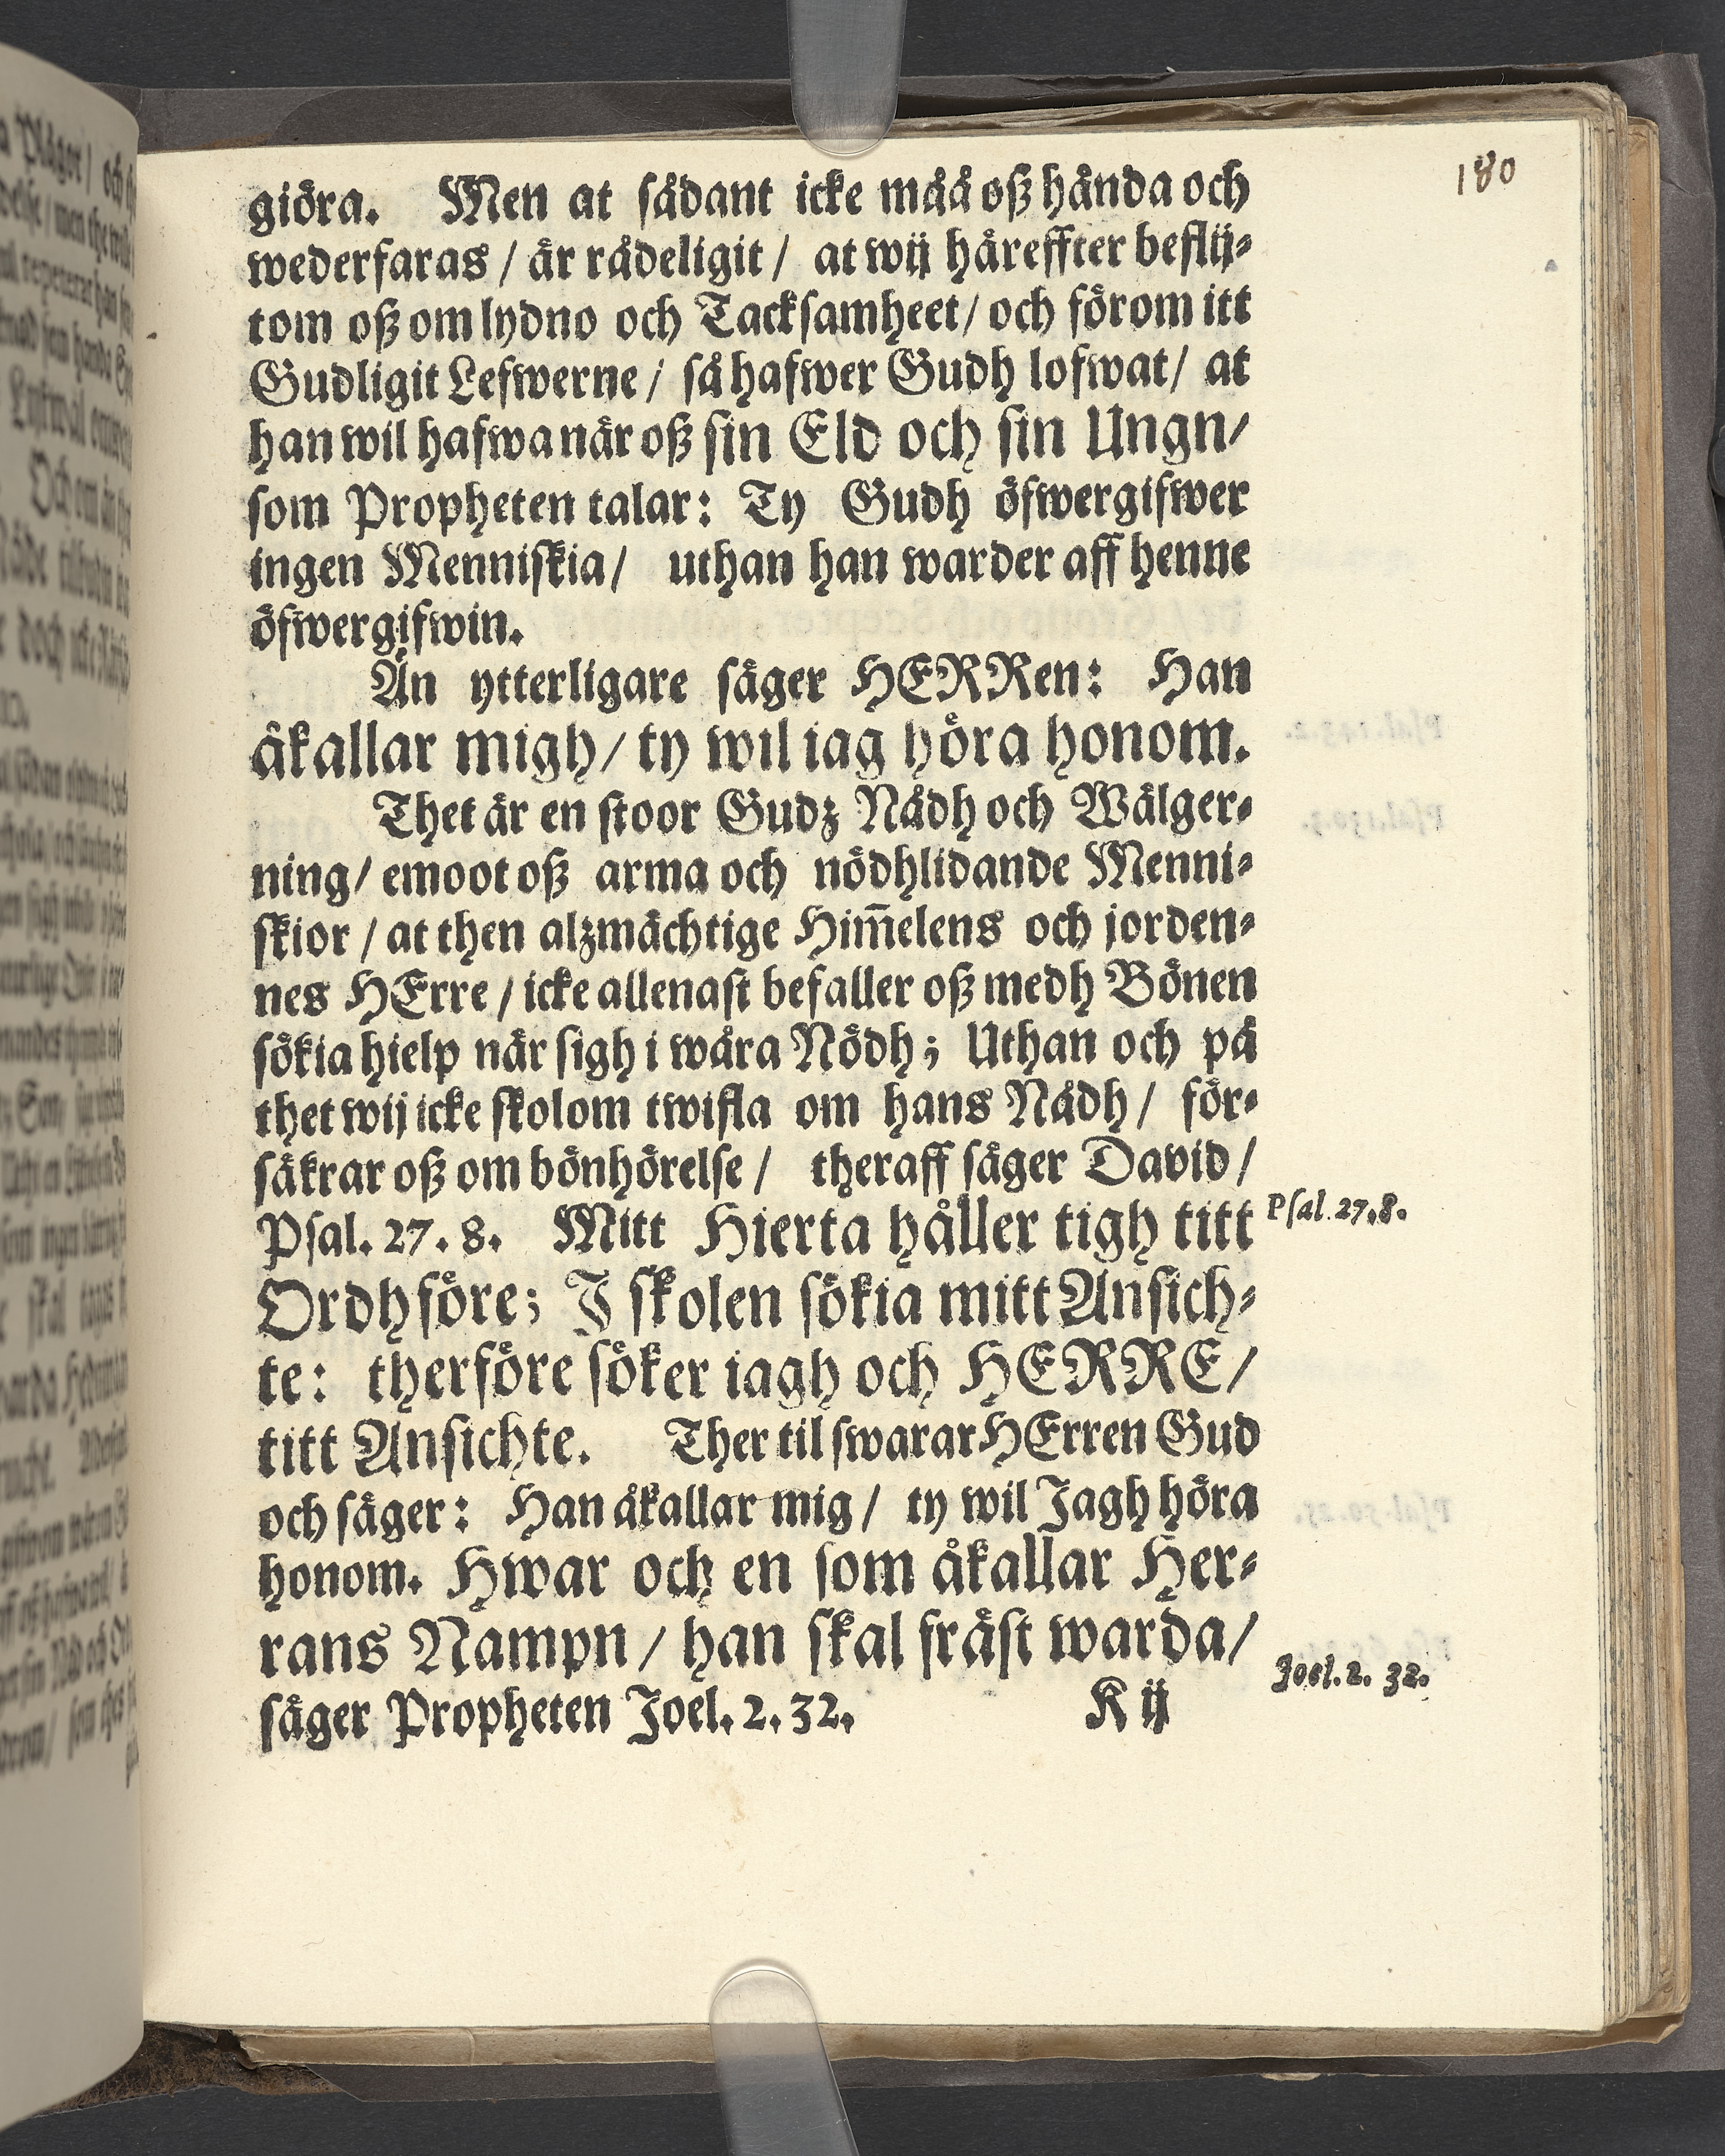 180
giöra. Men at sådant icke måå oß hända och
wederfaras / är rådeligit / at wij häreffter beflij-
tom oß om lydno och Tacksamheet / och förom itt
Gudligit Lefwerne / så hafwer Gudh lofwat / at
han wil hafwa när oß sin Eld och sin Ungn /
som Propheten talar: Ty Gudh öfwergifwer
ingen Menniskia / uthan han warder aff henne
öfwergifwin.
Än ytterligare säger HERRen: Han
åkallar migh / ty wil iag höra honom.
Thet är en stoor Gudz Nådh och Wälger-
ning / emoot oß arma och nödhlidande Menni-
skior / at then alzmächtige Him̃elens och jorden-
nes HErre / icke allenast befaller oß medh Bönen
sökia hielp när sigh i wåra Nödh; Uthan och på
thet wij icke skolom twifla om hans Nådh / för-
säkrar oß om bönhörelse / theraff säger David /
Psal. 27. 8. Mitt Hierta håller tigh titt
Psal. 27.8.
Ordh före; I skolen sökia mitt Ansich-
te: therföre söker iagh och HERRE /
titt Ansichte. Ther til swarar HErren Gud
och säger: Han åkallar mig / ty wil Jagh höra
honom. Hwar och en som åkallar Her-
rans Nampn / han skal fräst warda /
Joel. 2. 32.
säger Propheten Joel. 2. 32.
K ij